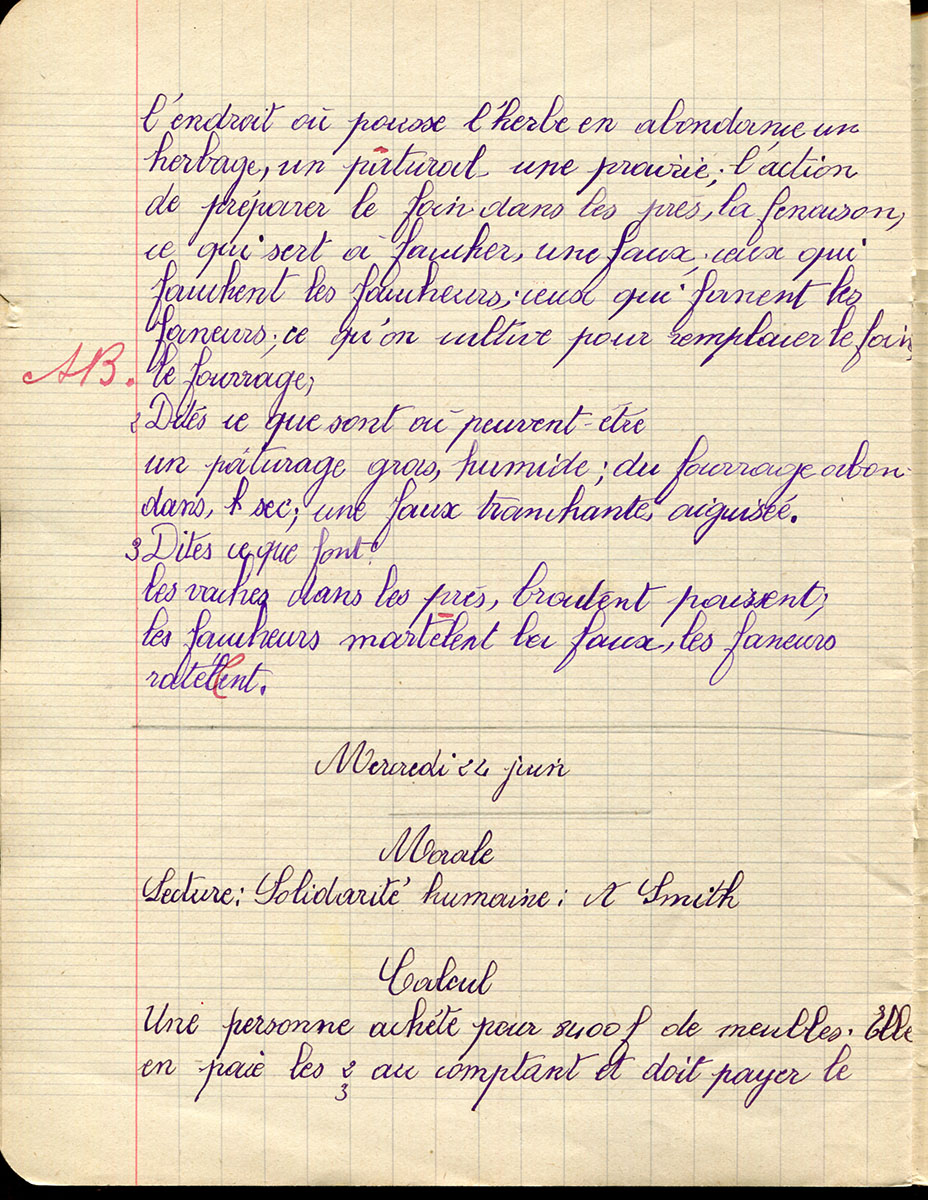 l'endroit où pousse l'herbe en abondance un
herbage, un pâtural une prairie; l'action
de préparer le foin dans les prés, la fenaison,
ce qui sert à faucher, une faux; ceux qui
fauchent les faucheurs; ceux qui fanent les
faneurs; ce qu'on cultive pour remplacer le foin,
AB. le fourrage;
2 Dites ce que sont où peuvent-être
un pâturage gras, humide; du fourrage abon-
dans, sec; une faux tranchante, aiguisée.
3 Dites ce que font:
les vaches dans les prés, broutent paissent;
les faucheurs martèlent les faux, les faneurs
ratellent.
Mercredi 22 juin
Morale
Lecture: Solidarité humaine: A Smith
Calcul
Une personne achète pour 8400f de meubles. Elle
en paie les 2/3 au comptant et doit payer le